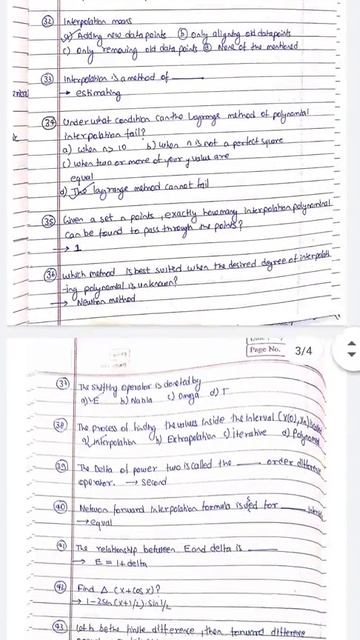 32) Interpolation means
a) Adding new data points b) Only aligning old datapoints
c) Only removing old data points d) None of the mentioned
33) Interpolation is a method of ______
→ estimating
34) Under what condition can the Lagrange method of polynomial
interpolation fail?
a) When n>10 b) When n is not a perfect square
c) When two or more of your y value are
equal
d) The lagrange method cannot fail
35) Given a set n points, exactly how many interpolation polynomial
can be found to pass through the points?
→ 1
36) Which method is best suited when the desired degree of interpolat
-ing polynomial is unknown?
→ Newton method
Page No. 3/4
37) The shifting operator is denoted by
a) E b) Nabla c) Omega d) T
38) The process of finding the values inside the interval (x(0), xn) is called
a) Interpolation b) Extrapolation c) iterative d) Polynomial
39) The Delta of power two is called the ____ order difference
operator. → second
40) Netwon forward interpolation formula is used for ____
→ equal
41) The relationship between E and delta is ____
→ E = 1+delta
42) Find Δ (x+cos x)?
→ 1-2sin(x+1/2).sin1/2
43) be the finite difference, then forward difference